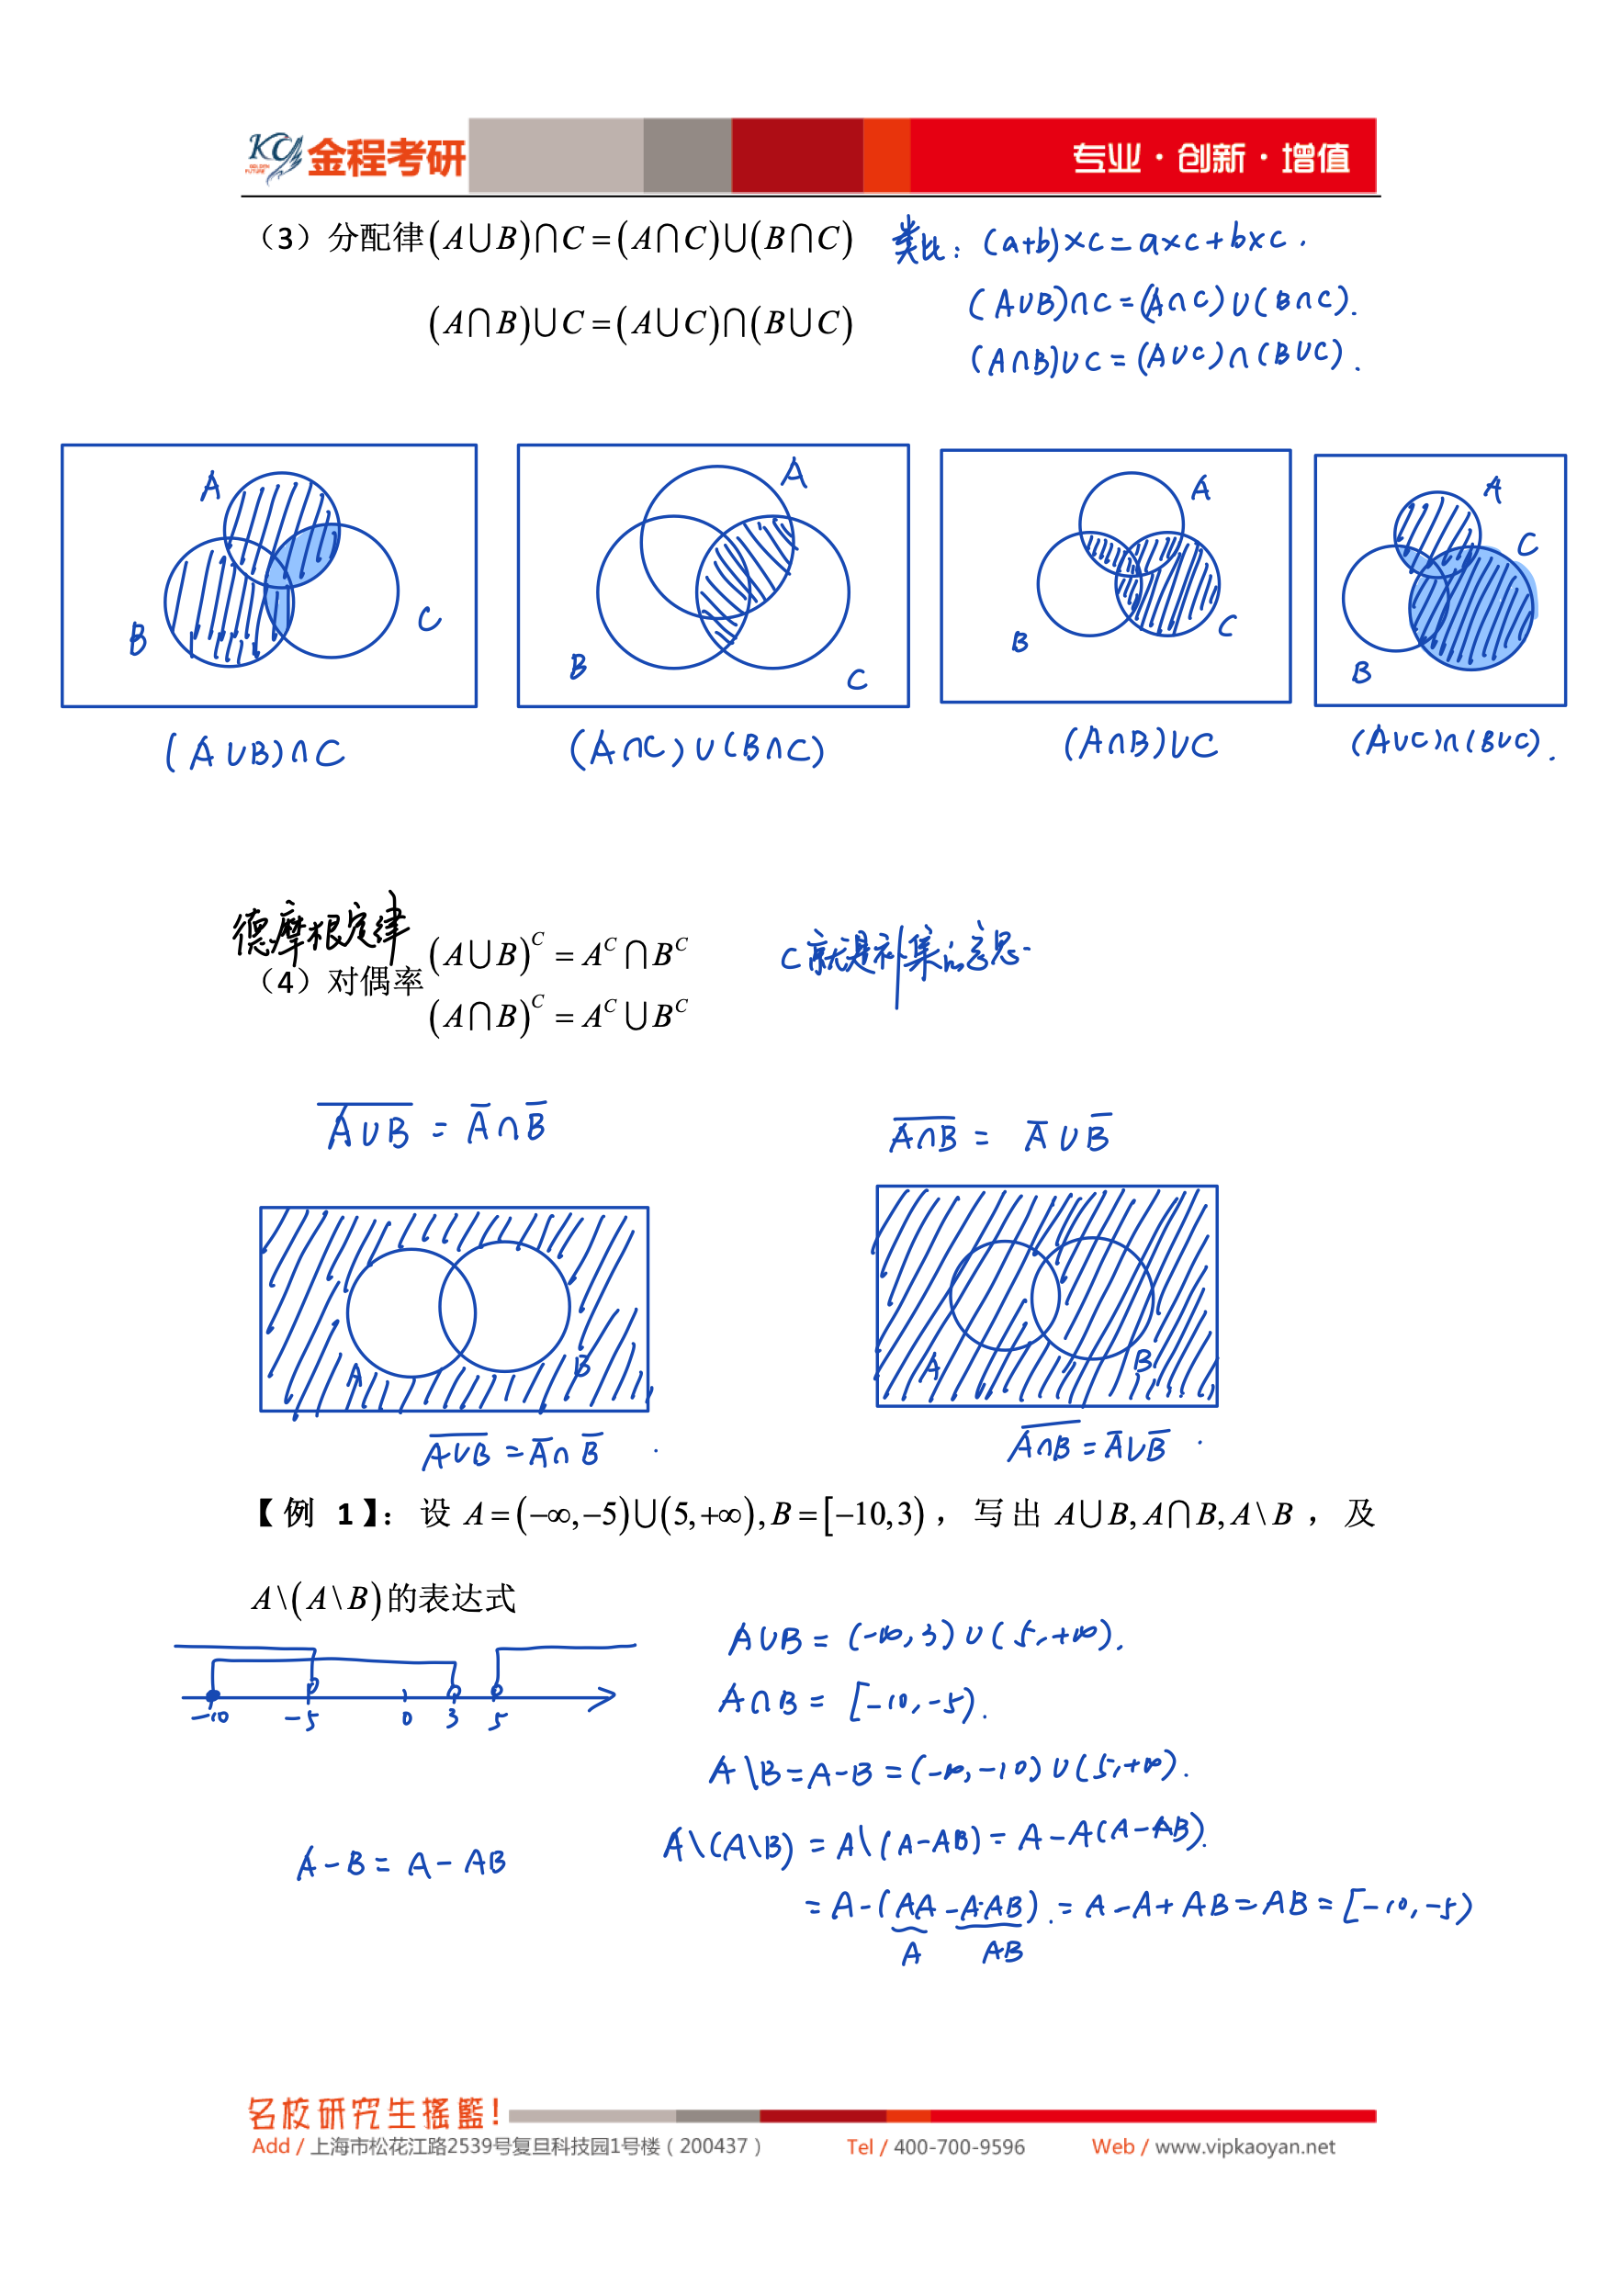 KCJ GOLDEN FUTURE 金程考研 专业·创新·增值
（3）分配律(A∪B)∩C=(A∩C)∪(B∩C) 类比：(a+b)×c=a×c+b×c.
(A∪B)∩C=(A∩C)∪(B∩C).
(A∩B)∪C=(A∪C)∩(B∪C)
(A∩B)∪C=(A∪C)∩(B∪C).
A B C
A B C
A B C
A C B
(A∪B)∩C (A∩C)∪(B∩C) (A∩B)∪C (A∪C)∩(B∪C).
德摩根定律
（4）对偶率 (A∪B)^C=A^C∩B^C C就是补集的意思.
(A∩B)^C=A^C∪B^C
A̅∪̅B̅ = A̅∩B̅ A̅∩̅B̅ = A̅∪B̅
A B A B
A̅∪̅B̅ = A̅∩B̅. A̅∩̅B̅ = A̅∪B̅.
【例 1】：设 A=(−∞,−5)∪(5,+∞),B=[−10,3)，写出 A∪B,A∩B,A\B，及
A\(A\B)的表达式
A∪B=(-∞,3)∪(5,+∞).
-10 -5 0 3 5
A∩B=[-10,-5).
A\B=A-B=(-∞,-10)∪(5,+∞).
A\(A\B)=A\(A-AB)=A-A(A-AB).
A-B=A-AB
=A-(AA-A·AB).=A-A+AB=AB=[-10,-5)
A AB
名校研究生摇篮！
Add / 上海市松花江路2539号复旦科技园1号楼（200437） Tel / 400-700-9596 Web / www.vipkaoyan.net